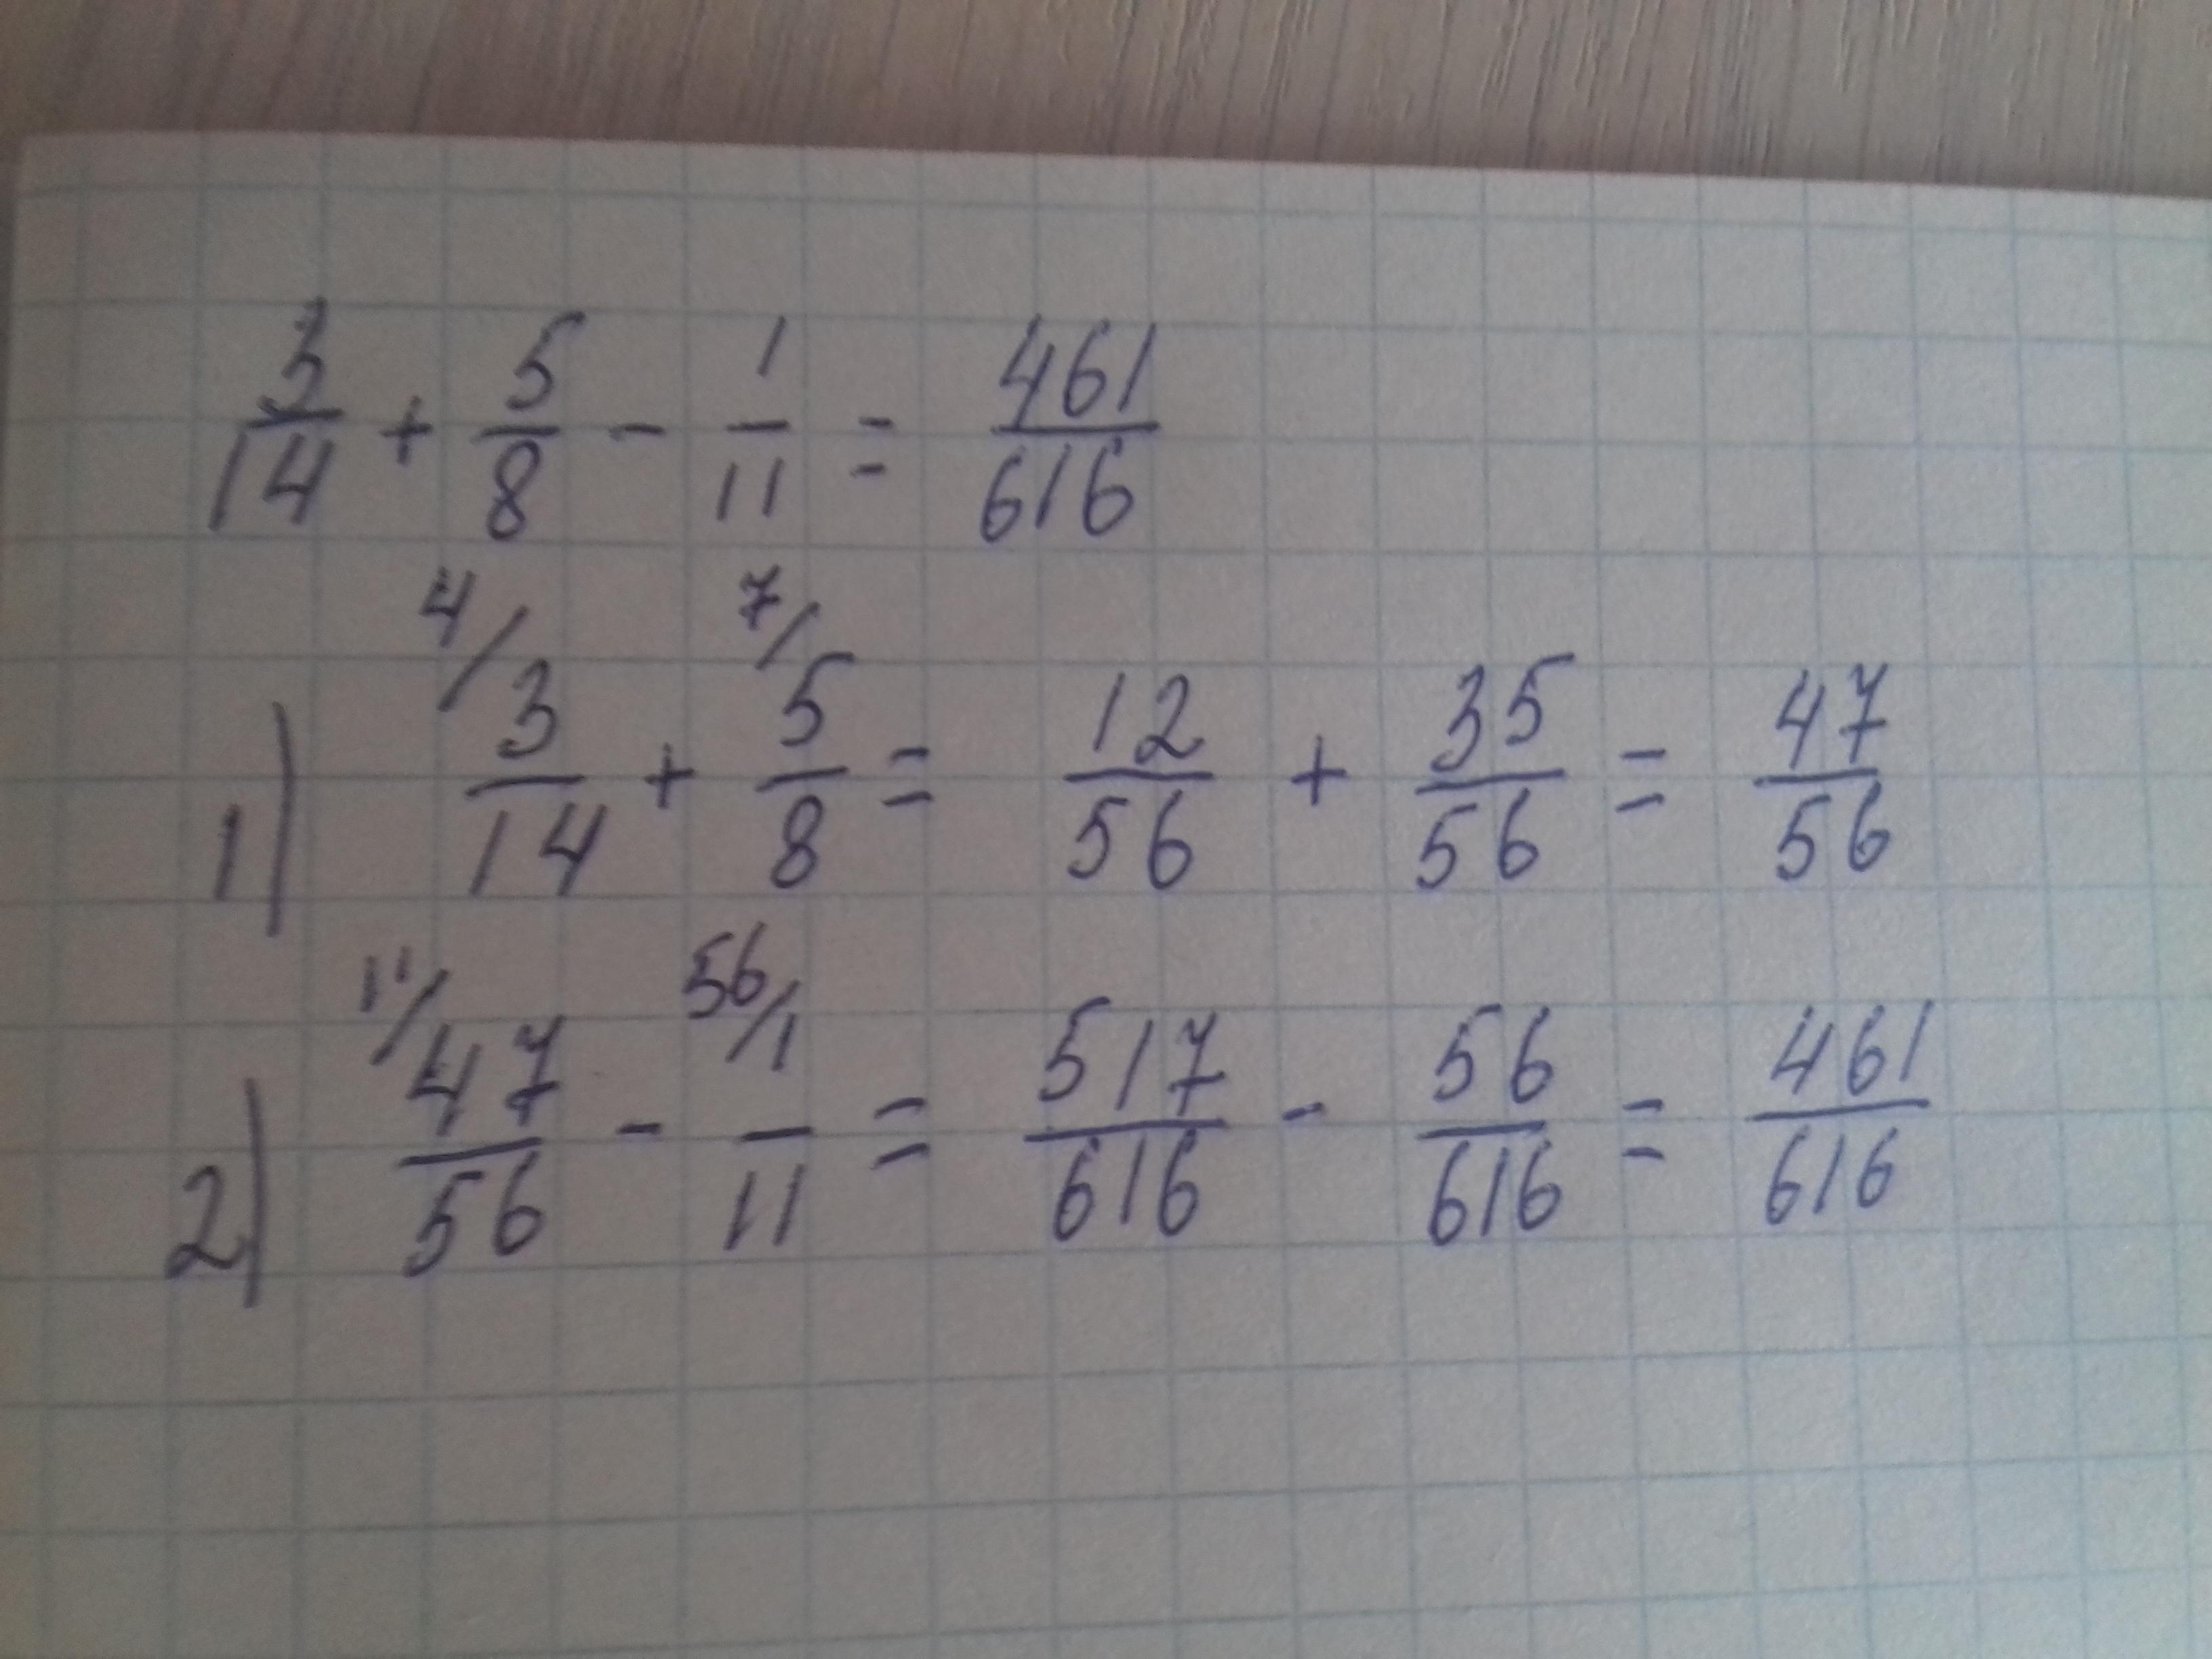 3/14 + 5/8 - 1/11 = 461/616
1) 4/ 3/14 + 7/ 5/8 = 12/56 + 35/56 = 47/56
2) 11/ 47/56 - 56/ 1/11 = 517/616 - 56/616 = 461/616